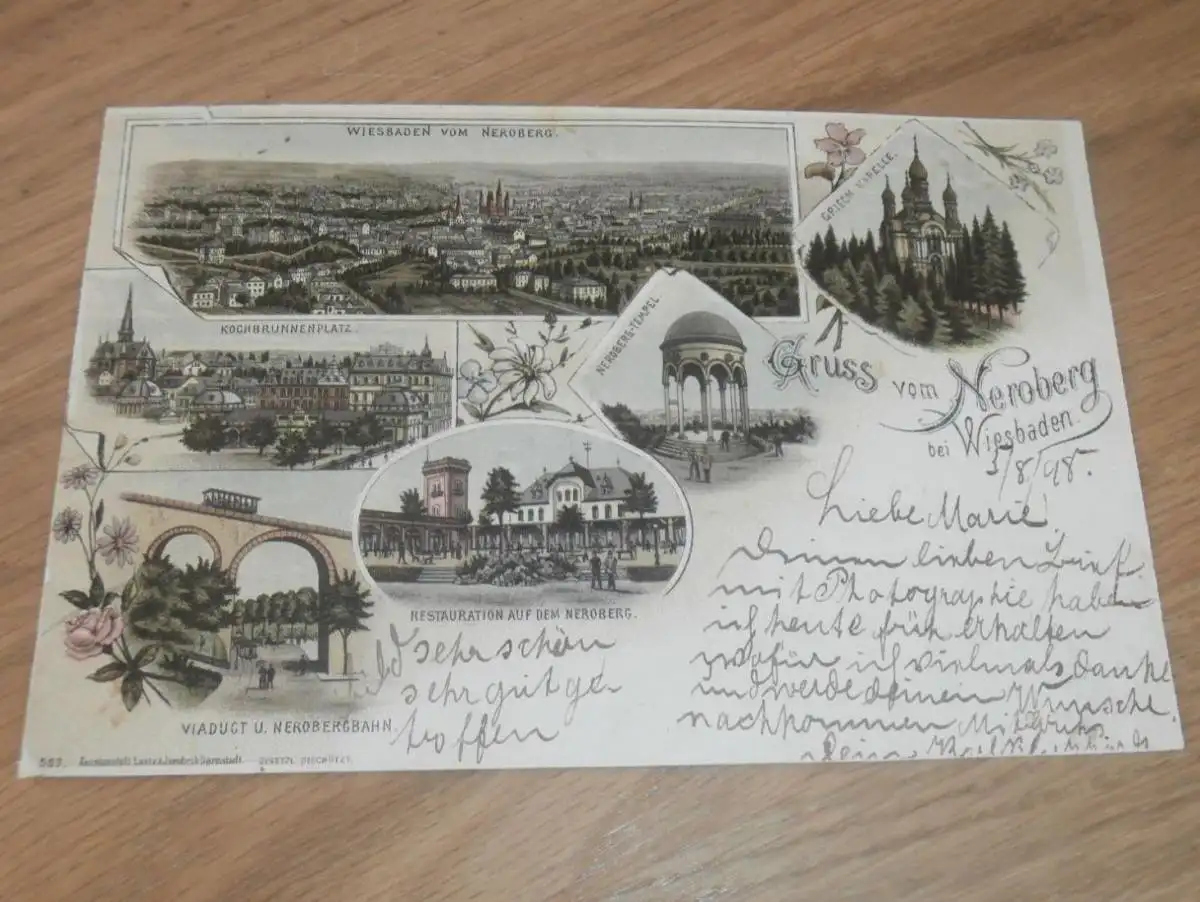 WIESBADEN VOM NEROBERG.
GRIECH. KAPELLE.
KOCHBRUNNENPLATZ.
NEROBERG-TEMPEL.
Gruss vom Neroberg
bei Wiesbaden.
5/8/98.
Liebe Marie
Deinen lieben Brief
mit Photographie haben
ich heute früh erhalten
wofür ich vielmals danke
und werde deinen Wunsche
nachkommen Mit Gruss
Deine
RESTAURATION AUF DEM NEROBERG.
Bild sehr schön
sehr gut ge-
troffen
VIADUCT U. NEROBERGBAHN.
563. Kunstanstalt Lautz & Isenbeck Darmstadt. GESETZL. GESCHÜTZT.